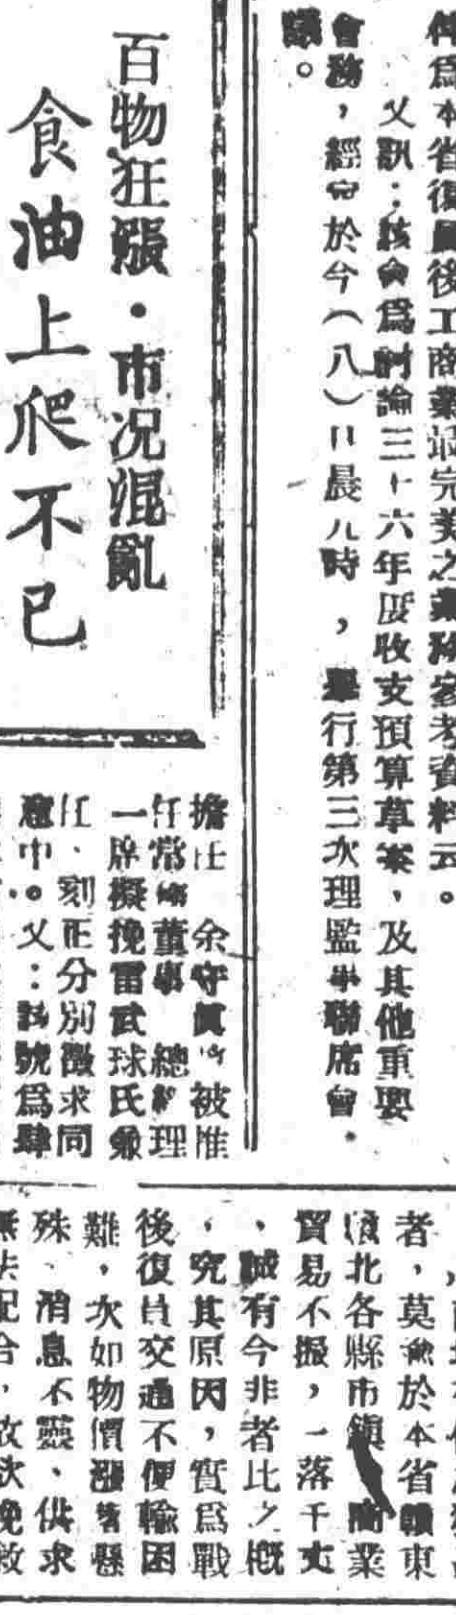 爲本省復員後工商業最完美之業務參考資料云。
又訊：該會爲討論三十六年度收支預算草案，及其他重要
會務，經定於今（八）日晨八時，舉行第三次理監事聯席會
議。
百物狂漲・市況混亂
食油上爬不已
擔任 余守 被推
任常 董事 總經理
一席擬挽雷武球氏兼
任、刻正分別徵求同
意中。又：該號爲肆
者，莫 於本省贛東
北各縣市鎮 商業
貿易不振，一落千丈
、誠有今非昔比之概
，究其原因，實爲戰
後復員交通不便輸困
難，次如物價漲 懸
殊、消息不靈、供求
無法配合，故欲挽救